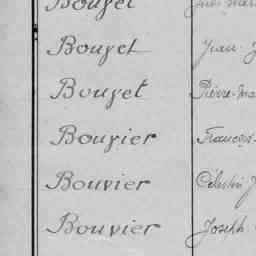 Bouget
Bouget Jean
Bouget Pierre-Ma
Bouvier François
Bouvier Célestin J
Bouvier Joseph